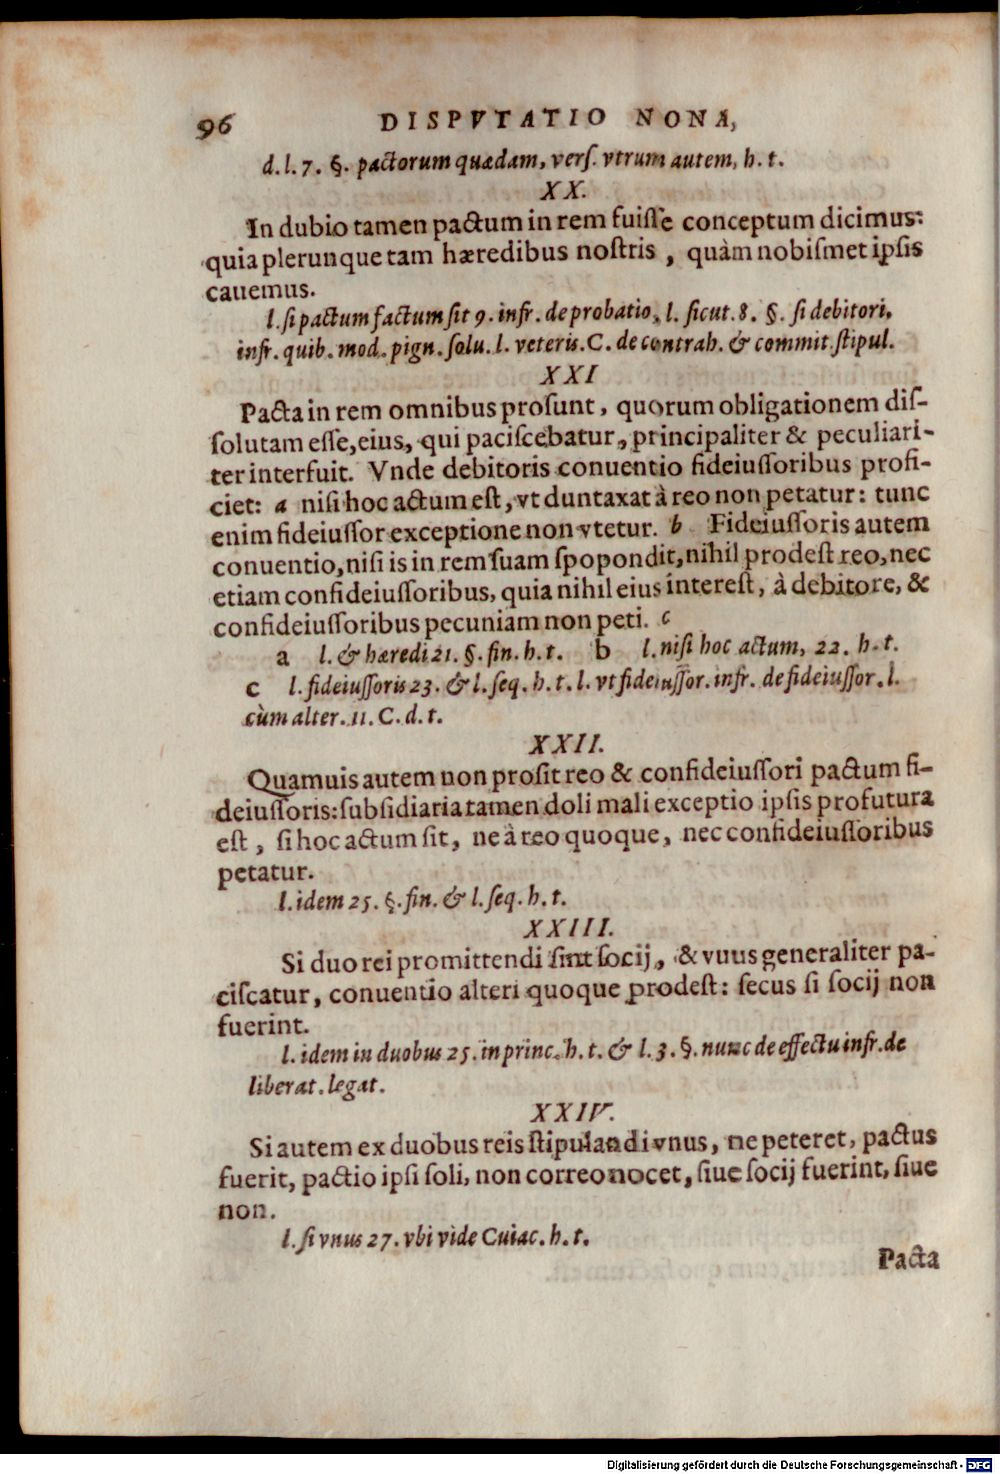 96 DISPVTATIO NONA,
d. l. 7. §. pactorum quædam, vers. vtrum autem, h. t.
XX.
In dubio tamen pactum in rem fuiſſe conceptum dicimus:
quia plerunque tam hæredibus noſtris, quàm nobiſmet ipſis
cauemus.
l. ſi pactum factum ſit 9. infr. de probatio, l. ſicut. 8. §. ſi debitori,
infr. quib. mod. pign. ſolu. l. veteris. C. de contrah. & commit. ſtipul.
XXI
Pacta in rem omnibus proſunt, quorum obligationem diſ-
ſolutam eſſe, eius, qui paciſcebatur, principaliter & peculiari-
ter interfuit. Vnde debitoris conuentio fideiuſſoribus profi-
ciet: a niſi hoc actum eſt, vt duntaxat à reo non petatur: tunc
enim fideiuſſor exceptione non vtetur. b Fideiuſſoris autem
conuentio, niſi is in rem ſuam ſpopondit, nihil prodeſt reo, nec
etiam confideiuſſoribus, quia nihil eius intereſt, à debitore, &
confideiuſſoribus pecuniam non peti. c
a l. & hæredi 21. §. fin. h. t. b l. niſi hoc actum, 22. h. t.
c l. fideiuſſoris 23. & l. ſeq. h. t. l. vt fideiuſſor. infr. de fideiuſſor. l.
cùm alter. 11. C. d. t.
XXII.
Quamuis autem non proſit reo & confideiuſſori pactum fi-
deiuſſoris: ſubſidiaria tamen doli mali exceptio ipſis profutura
eſt, ſi hoc actum ſit, ne à reo quoque, nec confideiuſſoribus
petatur.
l. idem 25. §. fin. & l. ſeq. h. t.
XXIII.
Si duo rei promittendi ſint ſocij, & vnus generaliter pa-
ciſcatur, conuentio alteri quoque prodeſt: ſecus ſi ſocij non
fuerint.
l. idem in duobus 25. in princ. h. t. & l. 3. §. nunc de effectu infr. de
liberat. legat.
XXIV.
Si autem ex duobus reis ſtipulandi vnus, ne peteret, pactus
fuerit, pactio ipſi ſoli, non correo nocet, ſiue ſocij fuerint, ſiue
non.
l. ſi vnus 27. vbi vide Cuiac. h. t.
Pacta
Digitalisierung gefördert durch die Deutsche Forschungsgemeinschaft - DFG